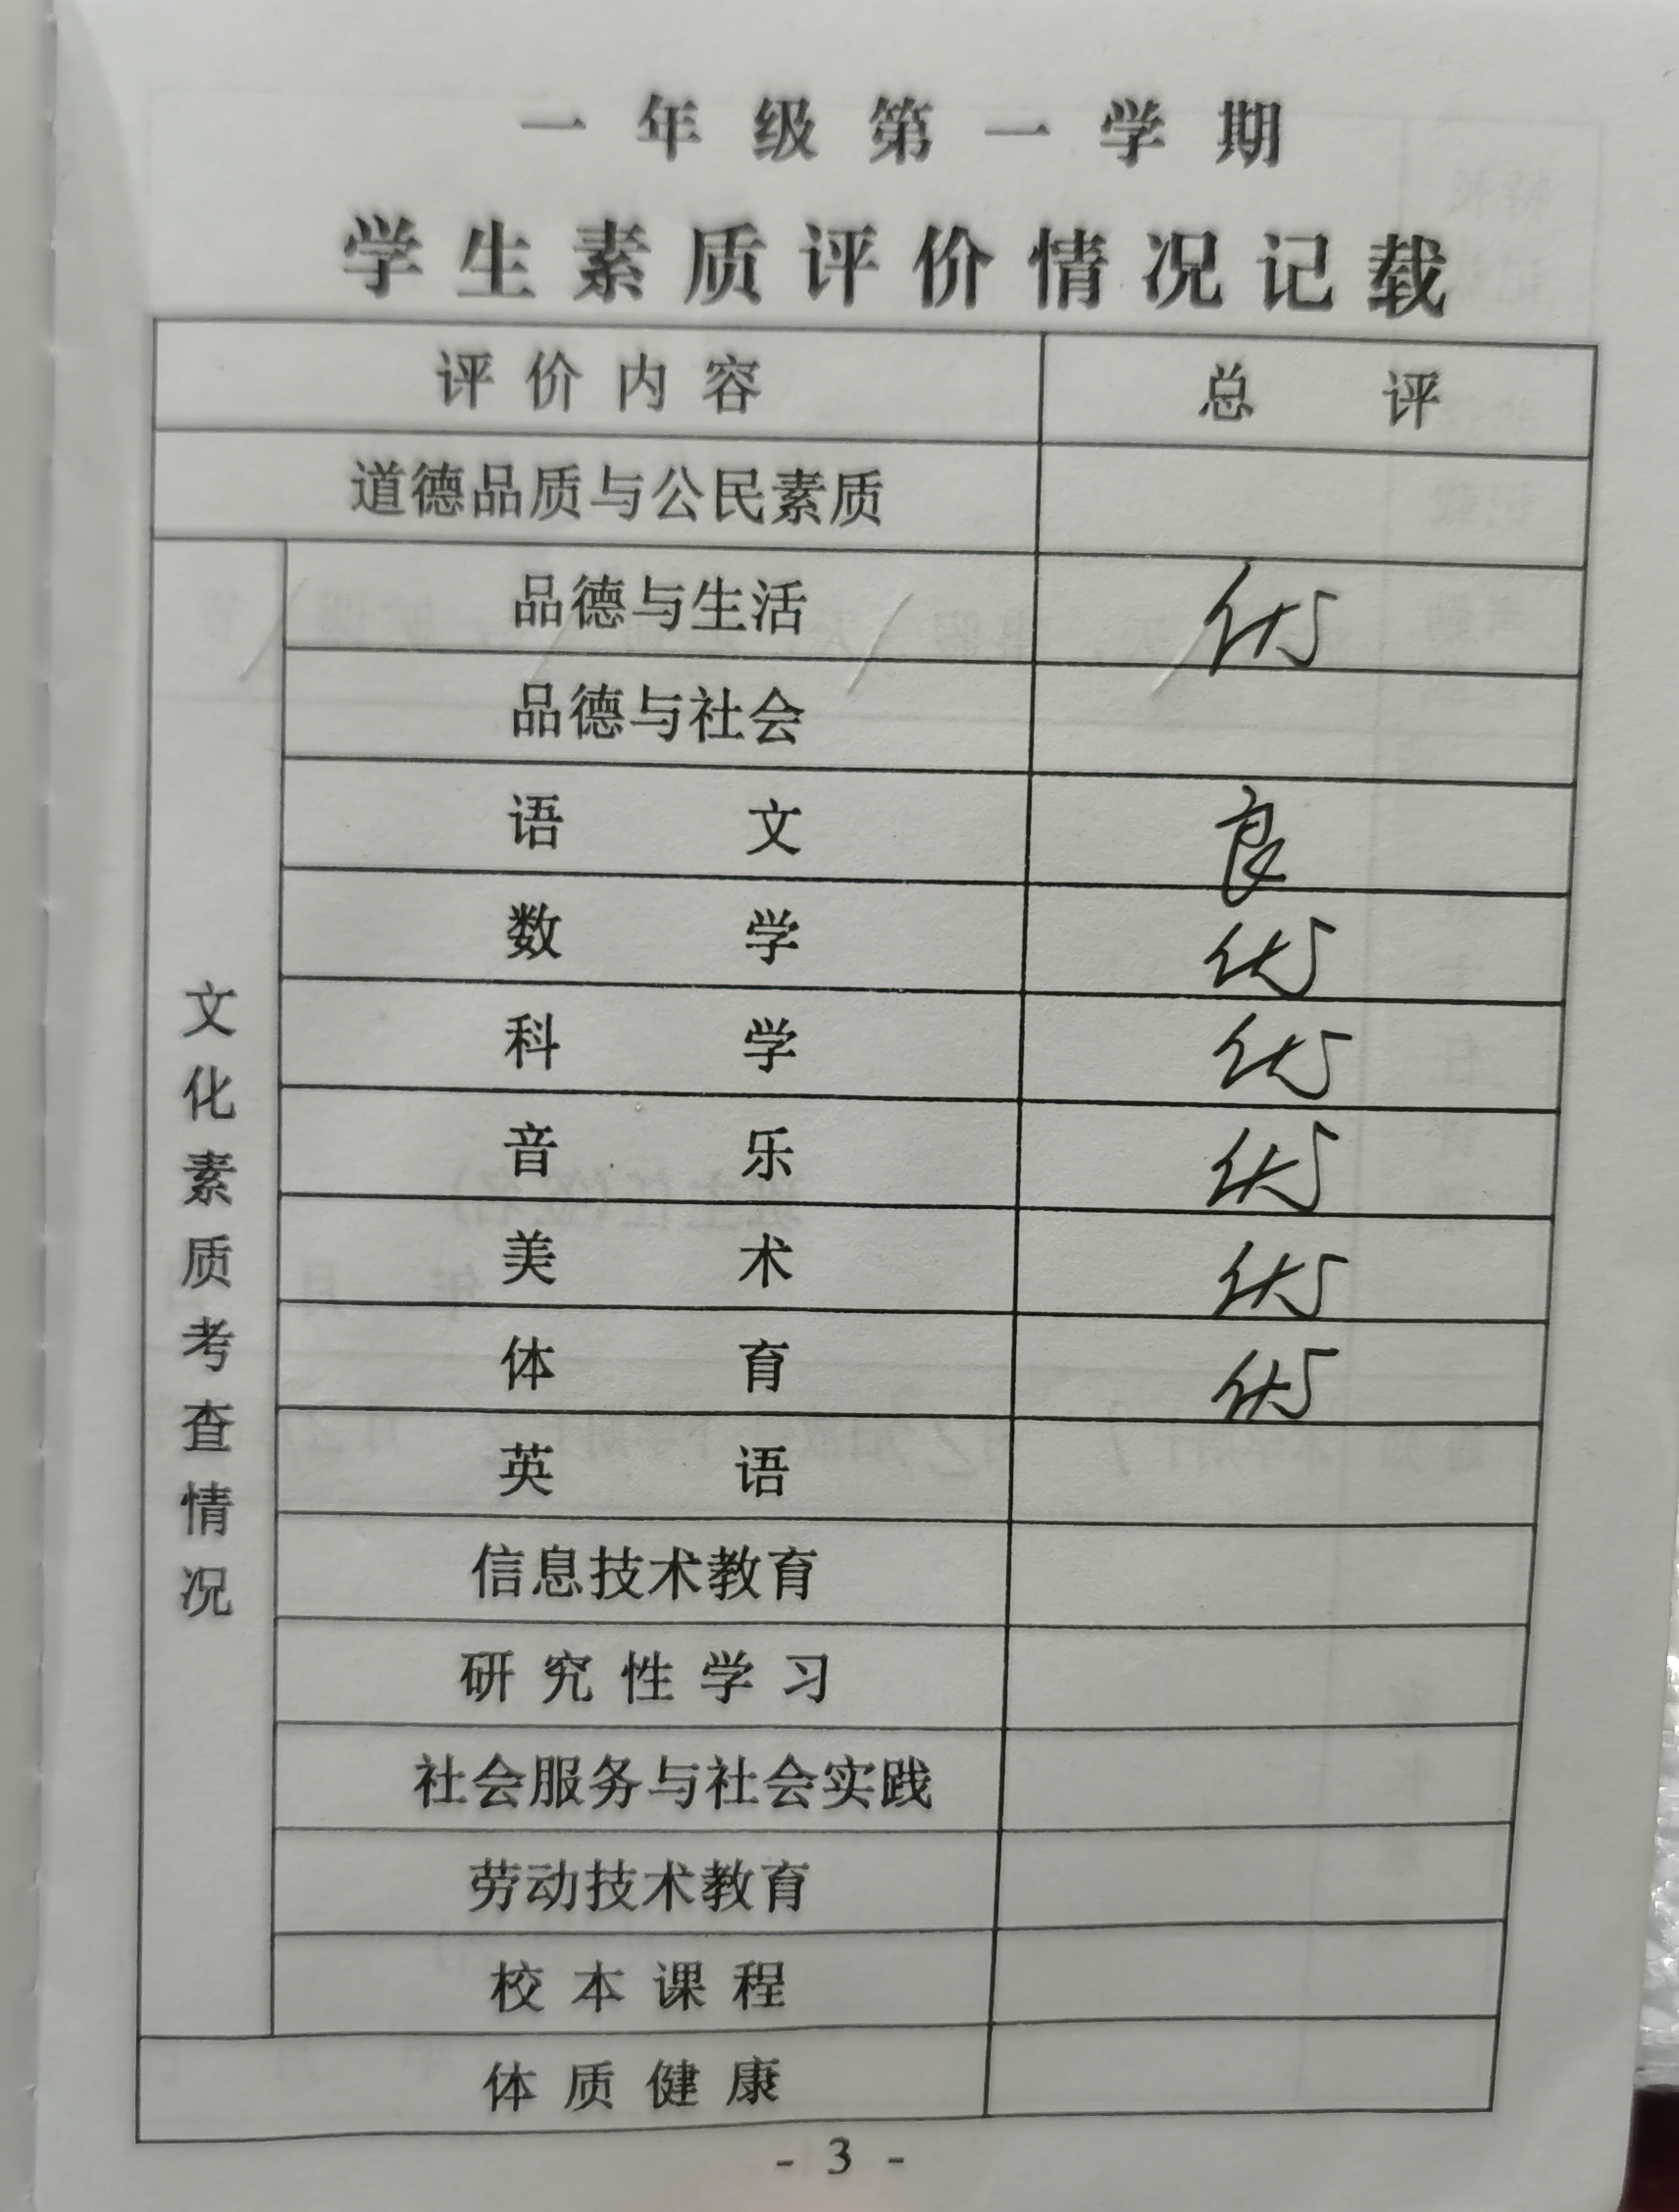 一年级第一学期
学生素质评价情况记载
评价内容 总评
道德品质与公民素质
文化素质考查情况
品德与生活 优
品德与社会
语文 良
数学 优
科学 优
音乐 优
美术 优
体育 优
英语
信息技术教育
研究性学习
社会服务与社会实践
劳动技术教育
校本课程
体质健康
- 3 -